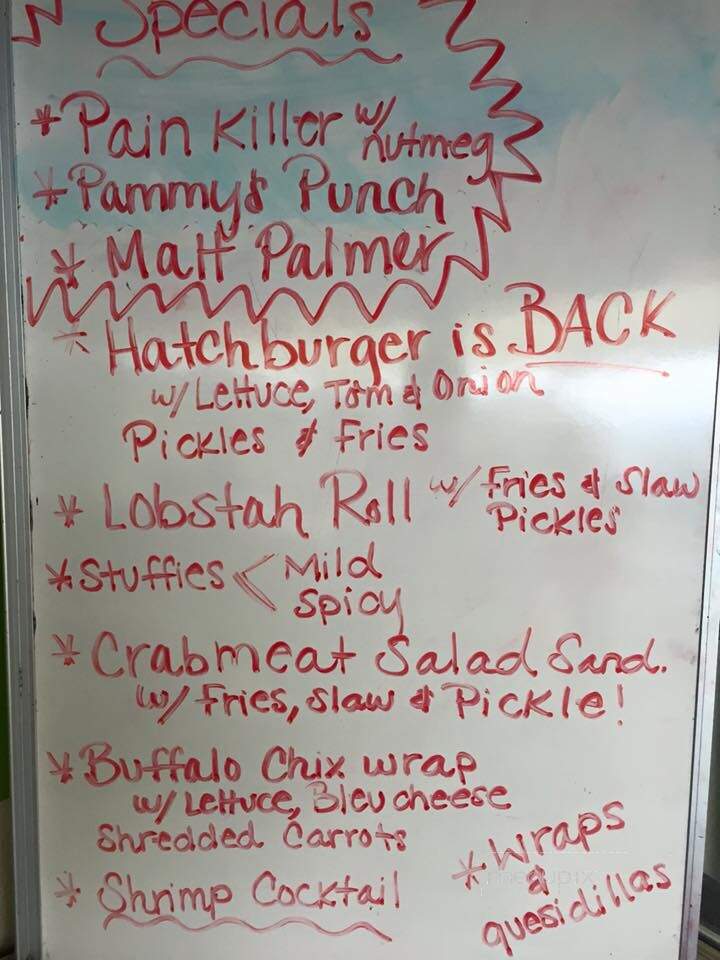 Specials
* Pain Killer w/ nutmeg
* Pammy's Punch
* Matt Palmer
* Hatchburger is BACK
w/ Lettuce, Tom & Onion
Pickles & Fries
* Lobstah Roll w/ Fries & Slaw
Pickles
* Stuffies < Mild
Spicy
* Crabmeat Salad Sand.
w/ Fries, Slaw & Pickle!
* Buffalo Chix wrap
w/ Lettuce, Bleu cheese
Shredded Carrots
* Shrimp Cocktail
* Wraps
&
quesidillas